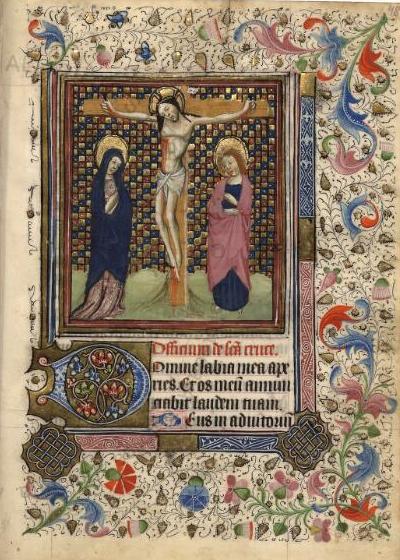 Officium de scā cruce.
Domine labia mea ape
ries. Et os meū annun
ciabit laudem tuam.
Deus in adiutoriū